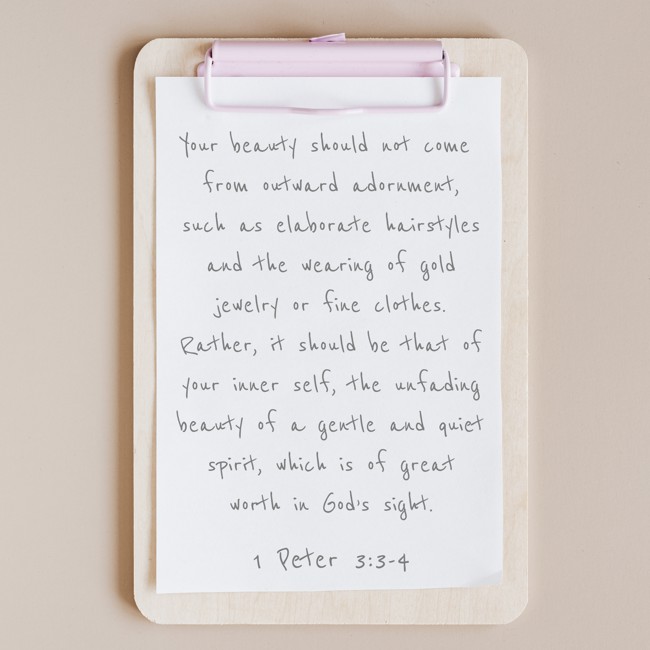 Your beauty should not come
from outward adornment,
such as elaborate hairstyles
and the wearing of gold
jewelry or fine clothes.
Rather, it should be that of
your inner self, the unfading
beauty of a gentle and quiet
spirit, which is of great
worth in God's sight.
1 Peter 3:3-4